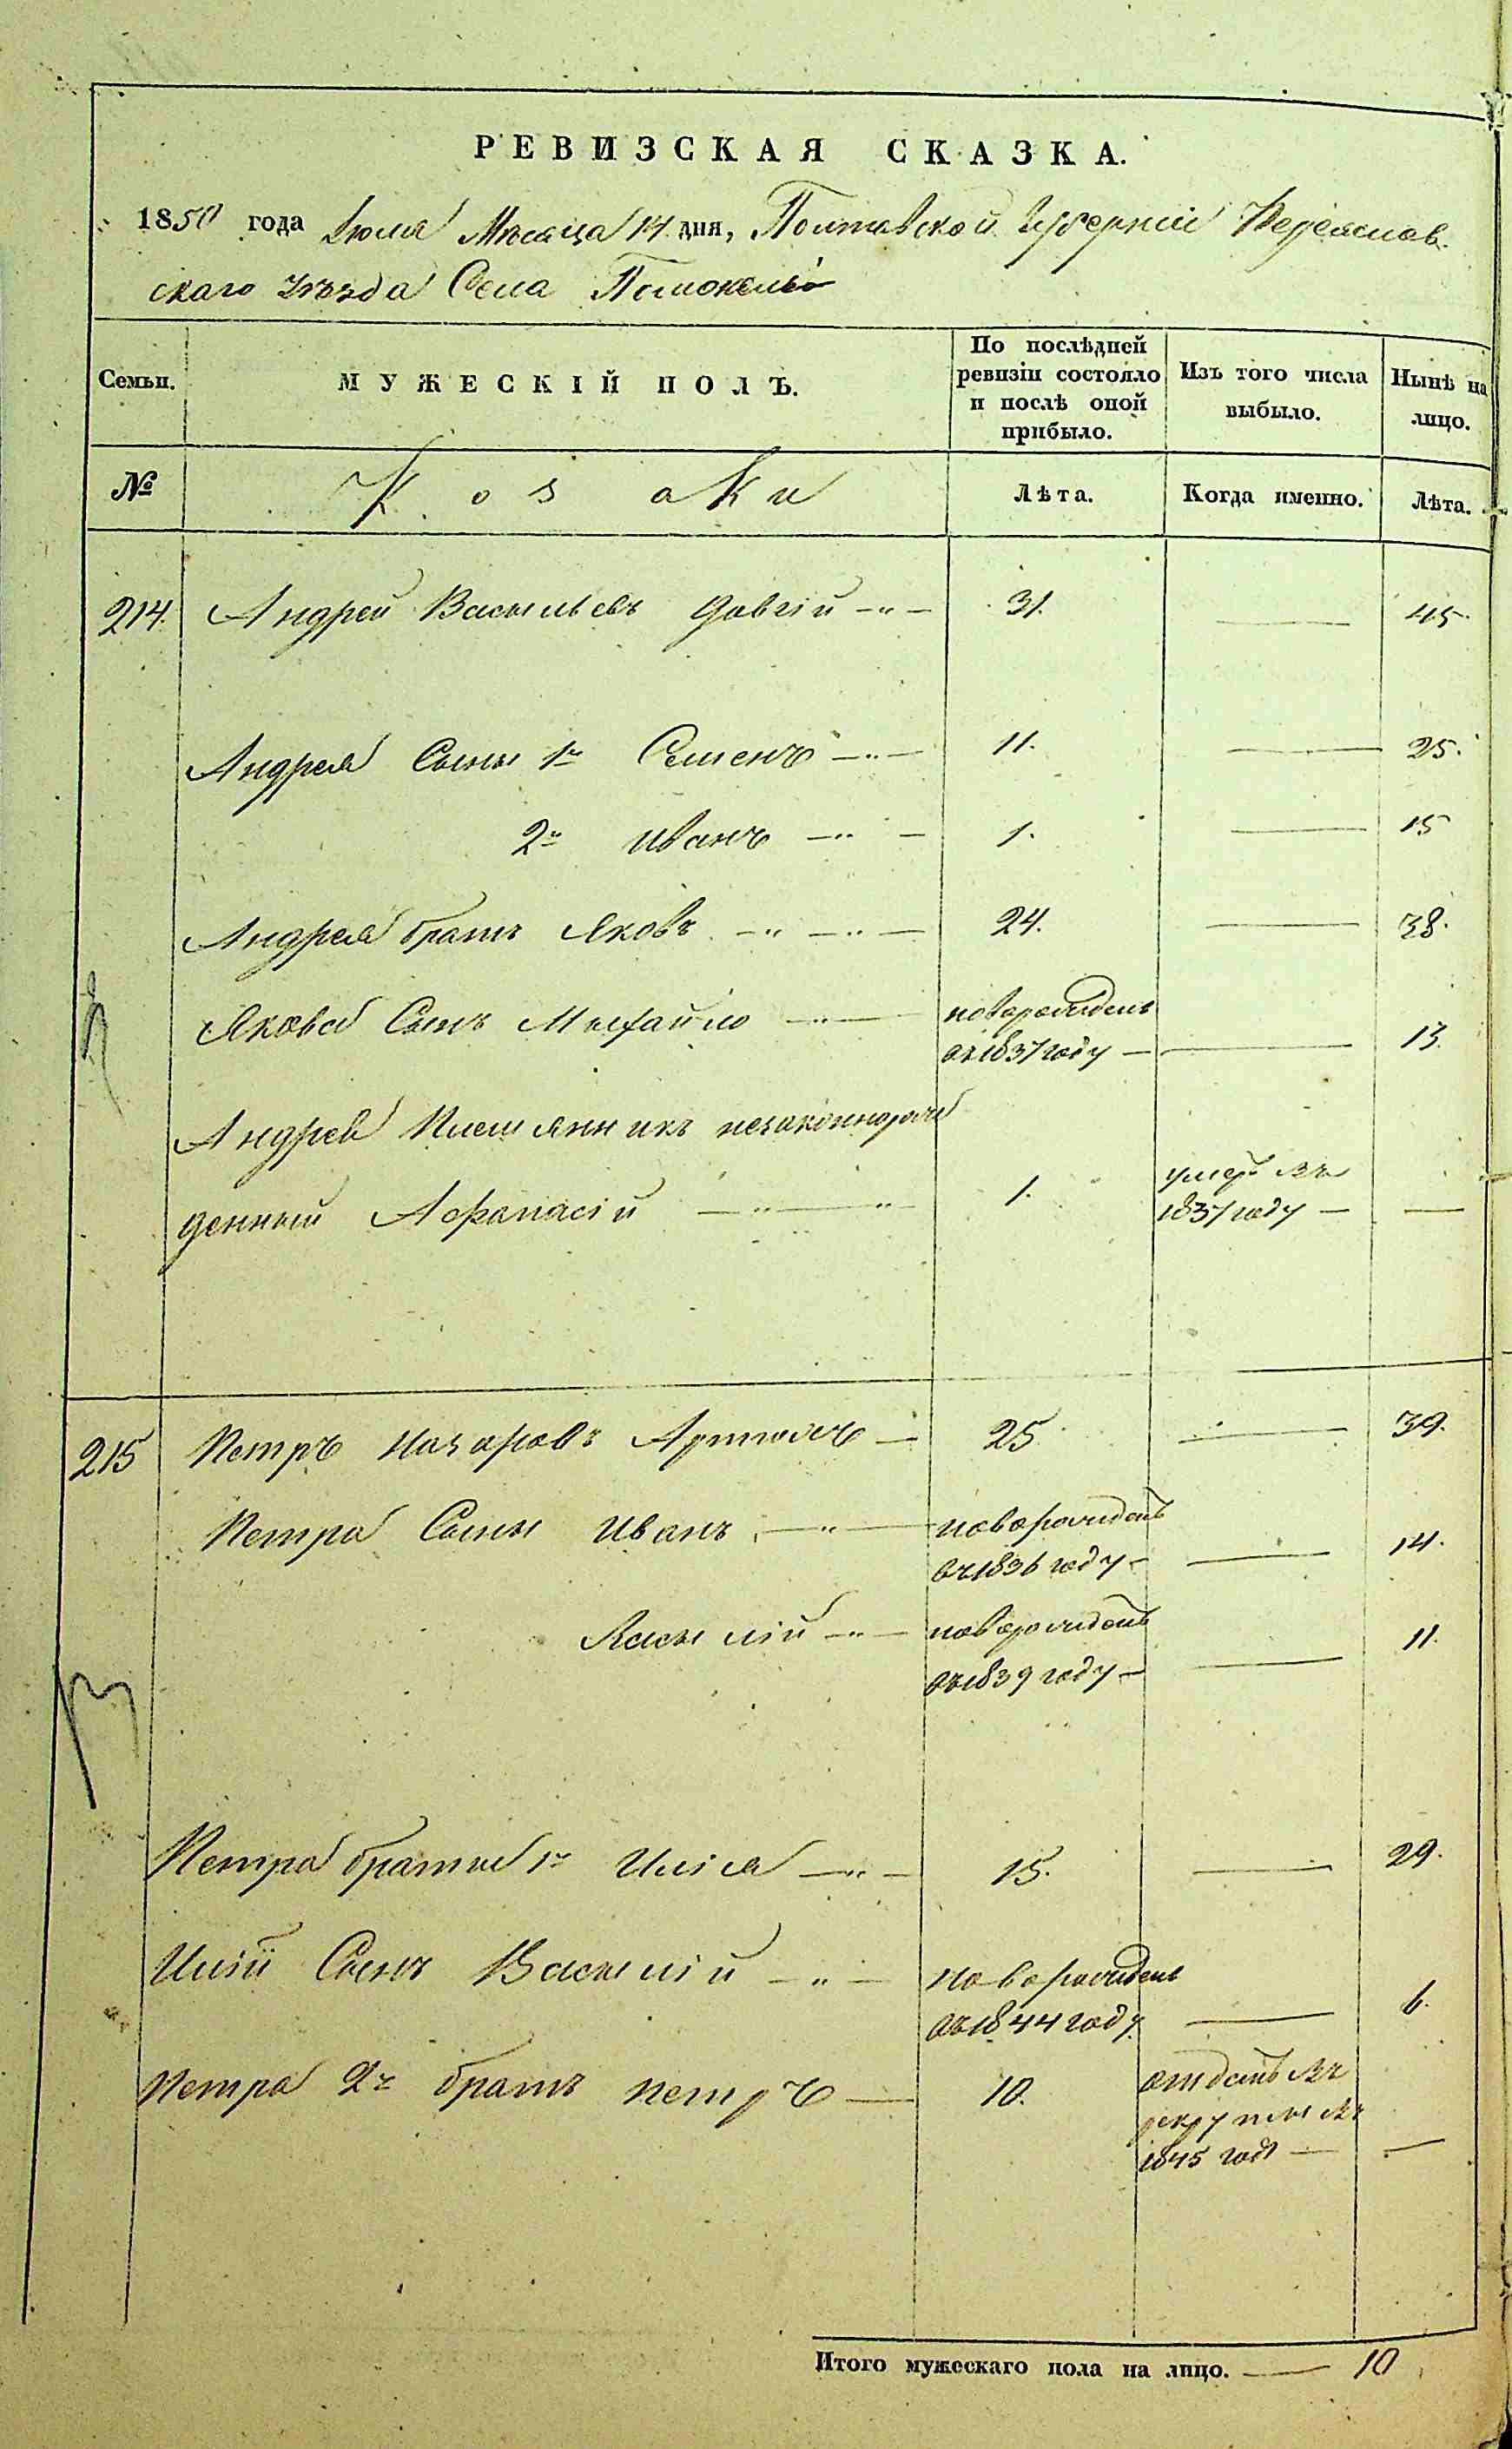 РЕВИЗСКАЯ СКАЗКА.
1850 года Іюля Мѣсяца 14 дня, Полтавской Губерніи Переяслав-
скаго Уѣзда Села
Семьи.
МУЖЕСКІЙ ПОЛЪ.
По послѣдней
ревизіи состояло
и послѣ оной
прибыло.
Изъ того числа
выбыло.
Нынѣ на
лицо.
№ Козаки Лѣта. Когда именно. Лѣта.
214. Андрей Васильевъ Довгій —"— 31. — 45.
Андрея Сыны 1й Семенъ —"— 11. — 25.
2й Иванъ —"— 1. — 15
Андрея братъ Яковъ —"—"— 24. — 38.
Якова Сынъ Михайло —"— новорожденъ
въ 1837 году — — 13.
Андрея Племянникъ незаконнорож
денный Афанасій —"—"— 1. умеръ въ
1837 году — —
215 Петръ Назаровъ — 25 — 39.
Петра Сыны Иванъ —"— новорожденъ
въ 1836 году — — 14.
Василій —"— новорожденъ
въ 1839 году — — 11.
Петра братья 1й Илія —"— 15. — 29.
Иліи Сынъ Василій —"— новорожденъ
въ 1844 году — 6.
Петра 2й братъ Петръ — 10. отданъ въ
рекруты въ
1845 годѣ — —
Итого мужескаго пола на лицо. — 10